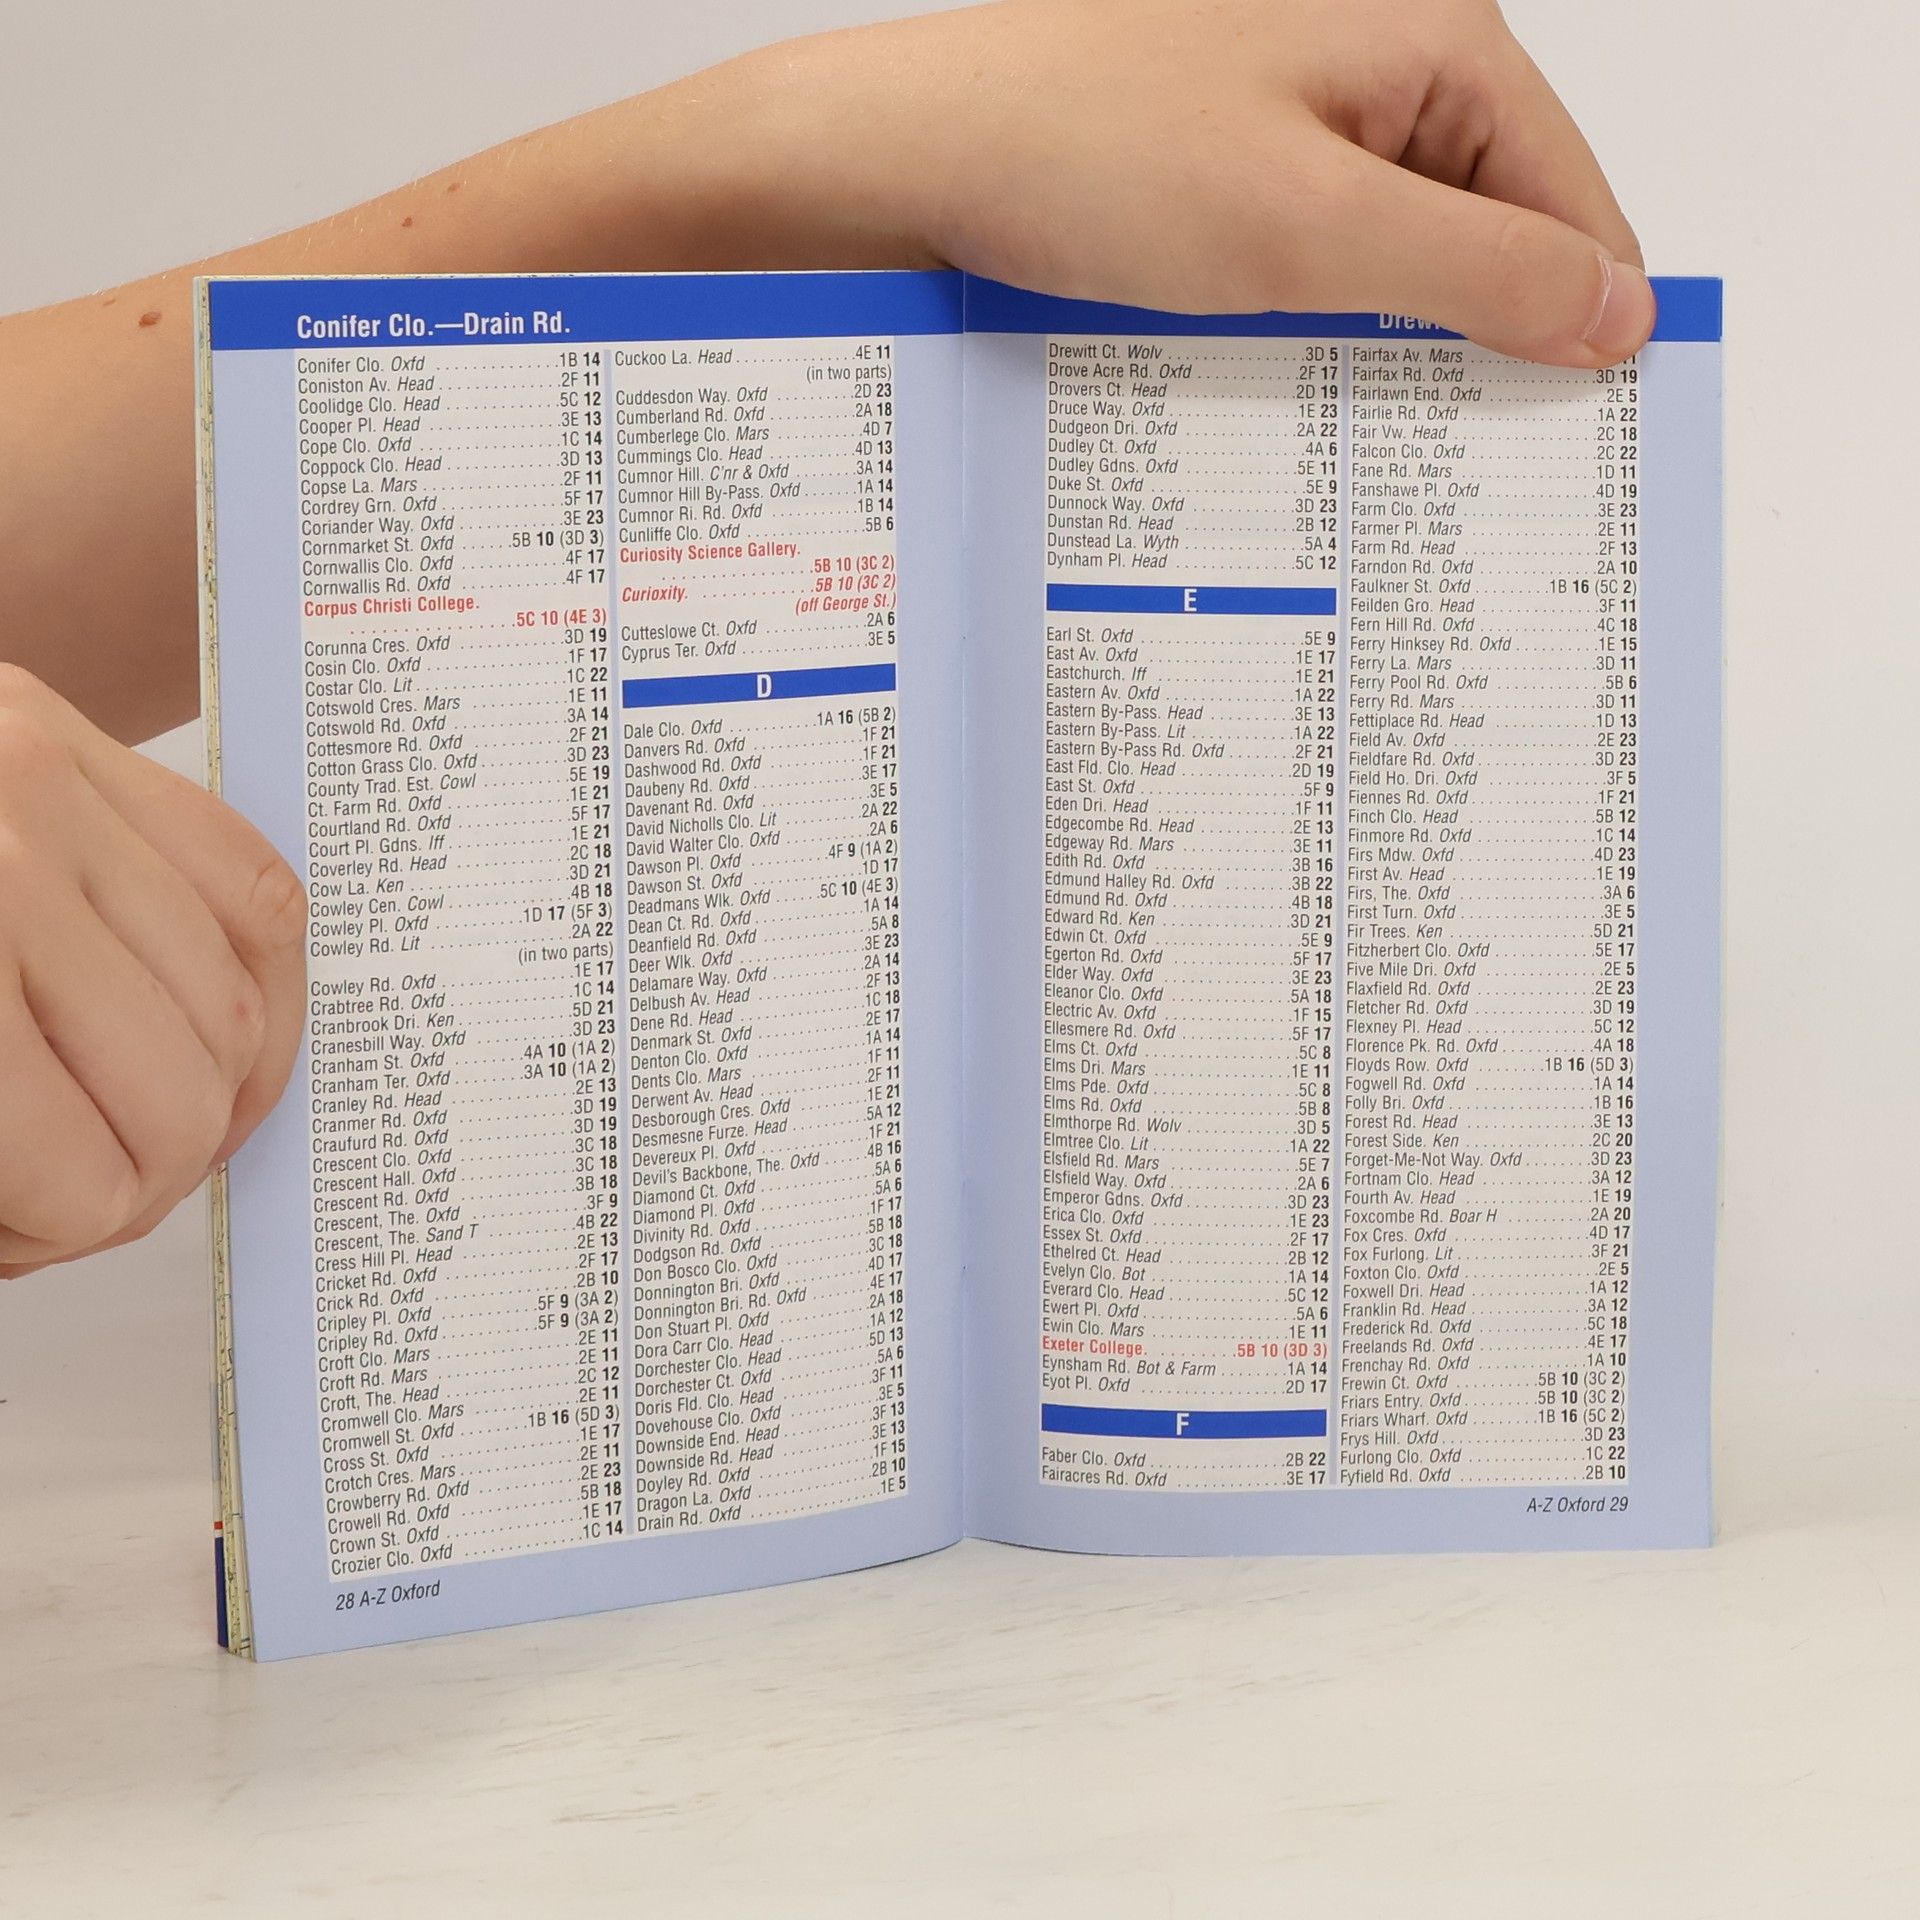 Conifer Clo.—Drain Rd.
Conifer Clo. Oxfd ..........1B 14
Coniston Av. Head ..........2F 11
Coolidge Clo. Head ..........5C 12
Cooper Pl. Head ..........3E 13
Cope Clo. Oxfd ..........1C 14
Coppock Clo. Head ..........3D 13
Copse La. Mars ..........2F 11
Cordrey Grn. Oxfd ..........5F 17
Coriander Way. Oxfd ..........3E 23
Cornmarket St. Oxfd ......5B 10 (3D 3)
Cornwallis Clo. Oxfd ..........4F 17
Cornwallis Rd. Oxfd ..........4F 17
Corpus Christi College.
..........5C 10 (4E 3)
Corunna Cres. Oxfd ..........3D 19
Cosin Clo. Oxfd ..........1F 17
Costar Clo. Lit ..........1C 22
Cotswold Cres. Mars ..........1E 11
Cotswold Rd. Oxfd ..........3A 14
Cottesmore Rd. Oxfd ..........2F 21
Cotton Grass Clo. Oxfd ..........3D 23
County Trad. Est. Cowl ..........5E 19
Ct. Farm Rd. Oxfd ..........1E 21
Courtland Rd. Oxfd ..........5F 17
Court Pl. Gdns. Iff ..........1E 21
Coverley Rd. Head ..........2C 18
Cow La. Ken ..........3D 21
Cowley Cen. Cowl ..........4B 18
Cowley Pl. Oxfd ..........1D 17 (5F 3)
Cowley Rd. Lit ..........2A 22
(in two parts)
Cowley Rd. Oxfd ..........1E 17
Crabtree Rd. Oxfd ..........1C 14
Cranbrook Dri. Ken ..........5D 21
Cranesbill Way. Oxfd ..........3D 23
Cranham St. Oxfd ..........4A 10 (1A 2)
Cranham Ter. Oxfd ..........3A 10 (1A 2)
Cranley Rd. Head ..........2E 13
Cranmer Rd. Oxfd ..........3D 19
Craufurd Rd. Oxfd ..........3D 19
Crescent Clo. Oxfd ..........3C 18
Crescent Hall. Oxfd ..........3C 18
Crescent Rd. Oxfd ..........3B 18
Crescent, The. Oxfd ..........3F 9
Crescent, The. Sand T ..........4B 22
Cress Hill Pl. Head ..........2E 13
Cricket Rd. Oxfd ..........2F 17
Crick Rd. Oxfd ..........2B 10
Cripley Pl. Oxfd ..........5F 9 (3A 2)
Cripley Rd. Oxfd ..........5F 9 (3A 2)
Croft Clo. Mars ..........2E 11
Croft Rd. Mars ..........2E 11
Croft, The. Head ..........2C 12
Cromwell Clo. Mars ..........2E 11
Cromwell St. Oxfd ..........1B 16 (5D 3)
Cross St. Oxfd ..........1E 17
Crotch Cres. Mars ..........2E 11
Crowberry Rd. Oxfd ..........2E 23
Crowell Rd. Oxfd ..........5B 18
Crown St. Oxfd ..........1E 17
Crozier Clo. Oxfd ..........1C 14
Cuckoo La. Head ..........4E 11
(in two parts)
Cuddesdon Way. Oxfd ..........2D 23
Cumberland Rd. Oxfd ..........2A 18
Cumberlege Clo. Mars ..........4D 7
Cummings Clo. Head ..........4D 13
Cumnor Hill. C'nr & Oxfd ..........3A 14
Cumnor Hill By-Pass. Oxfd .......1A 14
Cumnor Ri. Rd. Oxfd ..........1B 14
Cunliffe Clo. Oxfd ..........5B 6
Curiosity Science Gallery.
..........5B 10 (3C 2)
Curioxity. ..........5B 10 (3C 2)
(off George St.)
Cutteslowe Ct. Oxfd ..........2A 6
Cyprus Ter. Oxfd ..........3E 5
D
Dale Clo. Oxfd ..........1A 16 (5B 2)
Danvers Rd. Oxfd ..........1F 21
Dashwood Rd. Oxfd ..........1F 21
Daubeny Rd. Oxfd ..........3E 17
Davenant Rd. Oxfd ..........3E 5
David Nicholls Clo. Lit ..........2A 22
David Walter Clo. Oxfd ..........2A 6
Dawson Pl. Oxfd ..........4F 9 (1A 2)
Dawson St. Oxfd ..........1D 17
Deadmans Wlk. Oxfd ......5C 10 (4E 3)
Dean Ct. Rd. Oxfd ..........1A 14
Deanfield Rd. Oxfd ..........5A 8
Deer Wlk. Oxfd ..........3E 23
Delamare Way. Oxfd ..........2A 14
Delbush Av. Head ..........2F 13
Dene Rd. Head ..........1C 18
Denmark St. Oxfd ..........2E 17
Denton Clo. Oxfd ..........1A 14
Dents Clo. Mars ..........1F 11
Derwent Av. Head ..........2F 11
Desborough Cres. Oxfd ..........1E 21
Desmesne Furze. Head ..........5A 12
Devereux Pl. Oxfd ..........1F 21
Devil's Backbone, The. Oxfd ......4B 16
Diamond Ct. Oxfd ..........5A 6
Diamond Pl. Oxfd ..........5A 6
Divinity Rd. Oxfd ..........1F 17
Dodgson Rd. Oxfd ..........5B 18
Don Bosco Clo. Oxfd ..........3C 18
Donnington Bri. Oxfd ..........4D 17
Donnington Bri. Rd. Oxfd ..........4E 17
Don Stuart Pl. Oxfd ..........2A 18
Dora Carr Clo. Head ..........1A 12
Dorchester Clo. Head ..........5D 13
Dorchester Ct. Oxfd ..........5A 6
Doris Fld. Clo. Head ..........3F 11
Dovehouse Clo. Oxfd ..........3E 5
Downside End. Head ..........3F 13
Downside Rd. Head ..........3E 13
Doyley Rd. Oxfd ..........1F 15
Dragon La. Oxfd ..........2B 10
Drain Rd. Oxfd ..........1E 5
28 A-Z Oxford
Drewitt Ct. Wolv ..........3D 5
Drove Acre Rd. Oxfd ..........2F 17
Drovers Ct. Head ..........2D 19
Druce Way. Oxfd ..........1E 23
Dudgeon Dri. Oxfd ..........2A 22
Dudley Ct. Oxfd ..........4A 6
Dudley Gdns. Oxfd ..........5E 11
Duke St. Oxfd ..........5E 9
Dunnock Way. Oxfd ..........3D 23
Dunstan Rd. Head ..........2B 12
Dunstead La. Wyth ..........5A 4
Dynham Pl. Head ..........5C 12
E
Earl St. Oxfd ..........5E 9
East Av. Oxfd ..........1E 17
Eastchurch. Iff ..........1E 21
Eastern Av. Oxfd ..........1A 22
Eastern By-Pass. Head ..........3E 13
Eastern By-Pass. Lit ..........1A 22
Eastern By-Pass Rd. Oxfd ..........2F 21
East Fld. Clo. Head ..........2D 19
East St. Oxfd ..........5F 9
Eden Dri. Head ..........1F 11
Edgecombe Rd. Head ..........2E 13
Edgeway Rd. Mars ..........3E 11
Edith Rd. Oxfd ..........3B 16
Edmund Halley Rd. Oxfd ..........3B 22
Edmund Rd. Oxfd ..........4B 18
Edward Rd. Ken ..........3D 21
Edwin Ct. Oxfd ..........5E 9
Egerton Rd. Oxfd ..........5F 17
Elder Way. Oxfd ..........3E 23
Eleanor Clo. Oxfd ..........5A 18
Electric Av. Oxfd ..........1F 15
Ellesmere Rd. Oxfd ..........5F 17
Elms Ct. Oxfd ..........5C 8
Elms Dri. Mars ..........1E 11
Elms Pde. Oxfd ..........5C 8
Elms Rd. Oxfd ..........5B 8
Elmthorpe Rd. Wolv ..........3D 5
Elmtree Clo. Lit ..........1A 22
Elsfield Rd. Mars ..........5E 7
Elsfield Way. Oxfd ..........2A 6
Emperor Gdns. Oxfd ..........3D 23
Erica Clo. Oxfd ..........1E 23
Essex St. Oxfd ..........2F 17
Ethelred Ct. Head ..........2B 12
Evelyn Clo. Bot ..........1A 14
Everard Clo. Head ..........5C 12
Ewert Pl. Oxfd ..........5A 6
Ewin Clo. Mars ..........1E 11
Exeter College. ..........5B 10 (3D 3)
Eynsham Rd. Bot & Farm ..........1A 14
Eyot Pl. Oxfd ..........2D 17
F
Faber Clo. Oxfd ..........2B 22
Fairacres Rd. Oxfd ..........3E 17
Fairfax Av. Mars ..........
Fairfax Rd. Oxfd ..........3D 19
Fairlawn End. Oxfd ..........2E 5
Fairlie Rd. Oxfd ..........1A 22
Fair Vw. Head ..........2C 18
Falcon Clo. Oxfd ..........2C 22
Fane Rd. Mars ..........1D 11
Fanshawe Pl. Oxfd ..........4D 19
Farm Clo. Oxfd ..........3E 23
Farmer Pl. Mars ..........2E 11
Farm Rd. Head ..........2F 13
Farndon Rd. Oxfd ..........2A 10
Faulkner St. Oxfd ..........1B 16 (5C 2)
Feilden Gro. Head ..........3F 11
Fern Hill Rd. Oxfd ..........4C 18
Ferry Hinksey Rd. Oxfd ..........1E 15
Ferry La. Mars ..........3D 11
Ferry Pool Rd. Oxfd ..........5B 6
Ferry Rd. Mars ..........3D 11
Fettiplace Rd. Head ..........1D 13
Field Av. Oxfd ..........2E 23
Fieldfare Rd. Oxfd ..........3D 23
Field Ho. Dri. Oxfd ..........3F 5
Fiennes Rd. Oxfd ..........1F 21
Finch Clo. Head ..........5B 12
Finmore Rd. Oxfd ..........1C 14
Firs Mdw. Oxfd ..........4D 23
First Av. Head ..........1E 19
Firs, The. Oxfd ..........3A 6
First Turn. Oxfd ..........3E 5
Fir Trees. Ken ..........5D 21
Fitzherbert Clo. Oxfd ..........5E 17
Five Mile Dri. Oxfd ..........2E 5
Flaxfield Rd. Oxfd ..........2E 23
Fletcher Rd. Oxfd ..........3D 19
Flexney Pl. Head ..........5C 12
Florence Pk. Rd. Oxfd ..........4A 18
Floyds Row. Oxfd ..........1B 16 (5D 3)
Fogwell Rd. Oxfd ..........1A 14
Folly Bri. Oxfd ..........1B 16
Forest Rd. Head ..........3E 13
Forest Side. Ken ..........2C 20
Forget-Me-Not Way. Oxfd ..........3D 23
Fortnam Clo. Head ..........3A 12
Fourth Av. Head ..........1E 19
Foxcombe Rd. Boar H ..........2A 20
Fox Cres. Oxfd ..........4D 17
Fox Furlong. Lit ..........3F 21
Foxton Clo. Oxfd ..........2E 5
Foxwell Dri. Head ..........1A 12
Franklin Rd. Head ..........3A 12
Frederick Rd. Oxfd ..........5C 18
Freelands Rd. Oxfd ..........4E 17
Frenchay Rd. Oxfd ..........1A 10
Frewin Ct. Oxfd ..........5B 10 (3C 2)
Friars Entry. Oxfd ..........5B 10 (3C 2)
Friars Wharf. Oxfd ..........1B 16 (5C 2)
Frys Hill. Oxfd ..........3D 23
Furlong Clo. Oxfd ..........1C 22
Fyfield Rd. Oxfd ..........2B 10
A-Z Oxford 29